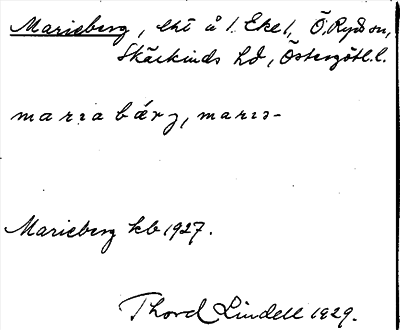 Marieberg, lht å 1. Eke 1, Ö. Ryds sn,
Skärkinds hd, Östergötl. l.
marıabǽrj, marıɔ-
Marieberg kb 1927.
Thord Lindell 1929.